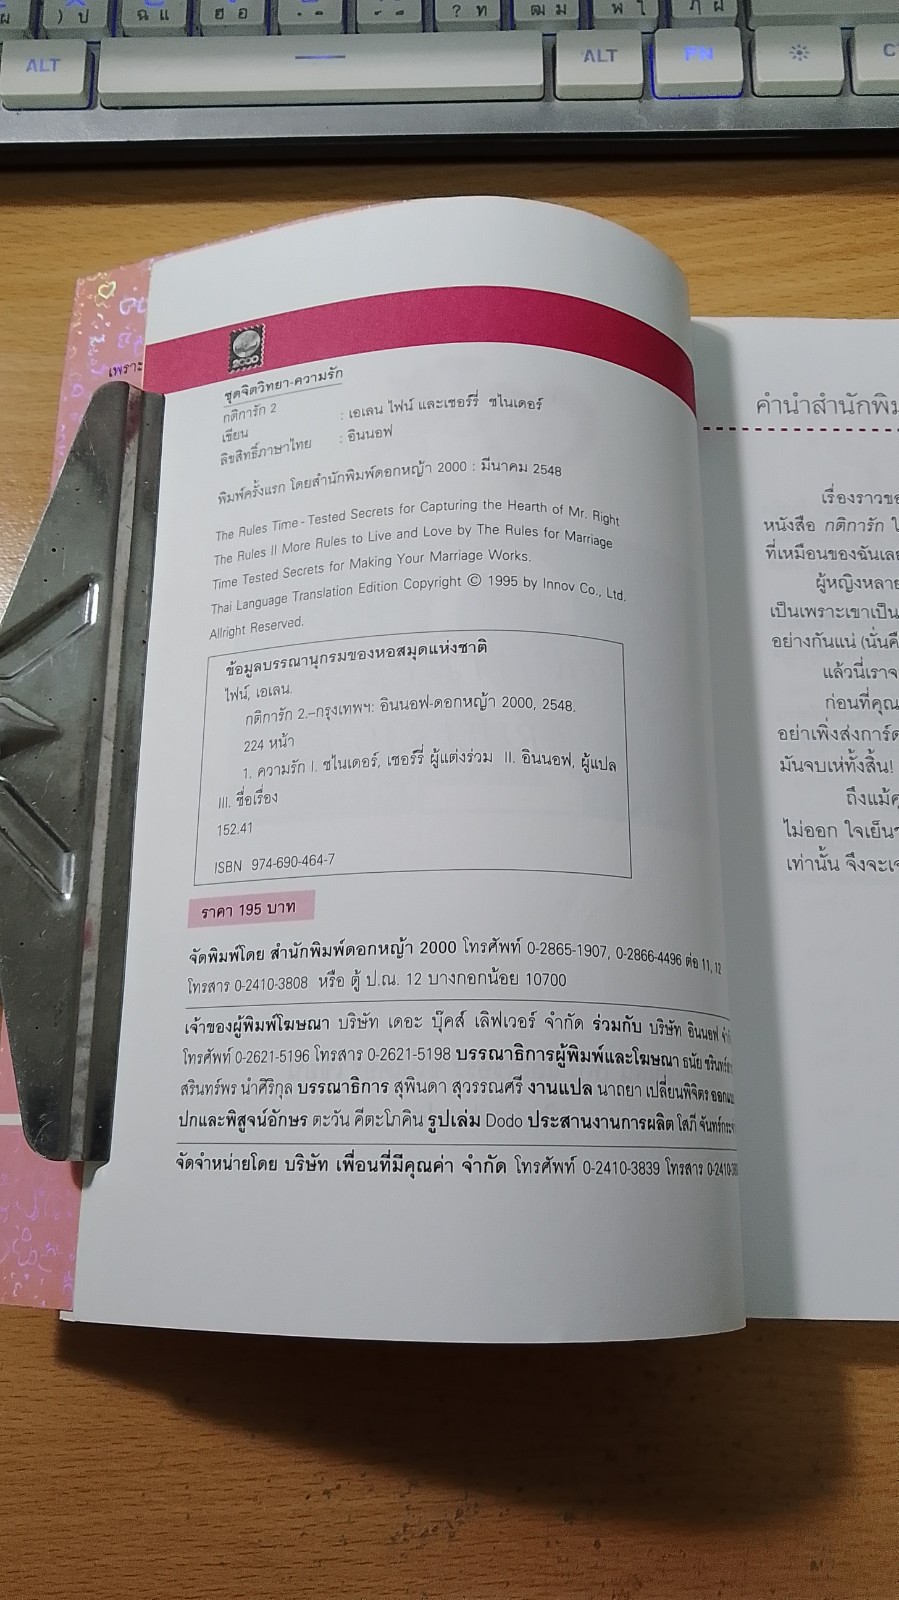 ALT
ALT
FN
2000
เพราะ
ชุดจิตวิทยา-ความรัก
กติการัก 2
เขียน : เอเลน ไฟน์ และเชอร์รี่ ชไนเดอร์
ลิขสิทธิ์ภาษาไทย : อินนอฟ
พิมพ์ครั้งแรก โดยสำนักพิมพ์ดอกหญ้า 2000 : มีนาคม 2548
The Rules Time - Tested Secrets for Capturing the Hearth of Mr. Right
The Rules II More Rules to Live and Love by The Rules for Marriage
Time Tested Secrets for Making Your Marriage Works.
Thai Language Translation Edition Copyright © 1995 by Innov Co., Ltd.
Allright Reserved.
ข้อมูลบรรณานุกรมของหอสมุดแห่งชาติ
ไฟน์, เอเลน.
กติการัก 2.–กรุงเทพฯ: อินนอฟ-ดอกหญ้า 2000, 2548.
224 หน้า
1. ความรัก I. ชไนเดอร์, เชอร์รี่ ผู้แต่งร่วม II. อินนอฟ, ผู้แปล
III. ชื่อเรื่อง
152.41
ISBN 974-690-464-7
ราคา 195 บาท
จัดพิมพ์โดย สำนักพิมพ์ดอกหญ้า 2000 โทรศัพท์ 0-2865-1907, 0-2866-4496 ต่อ 11, 12
โทรสาร 0-2410-3808 หรือ ตู้ ป.ณ. 12 บางกอกน้อย 10700
เจ้าของผู้พิมพ์โฆษณา บริษัท เดอะ บุ๊คส์ เลิฟเวอร์ จำกัด ร่วมกับ บริษัท อินนอฟ
โทรศัพท์ 0-2621-5196 โทรสาร 0-2621-5198 บรรณาธิการผู้พิมพ์และโฆษณา ธนัย
สรินทร์พร นำศิริกุล บรรณาธิการ สุพินดา สุวรรณศรี งานแปล นาถยา เปลี่ยนพิจิตร
ปกและพิสูจน์อักษร ตะวัน คีตะโภคิน รูปเล่ม Dodo ประสานงานการผลิต โสภี
จัดจำหน่ายโดย บริษัท เพื่อนที่มีคุณค่า จำกัด โทรศัพท์ 0-2410-3839 โทรสาร
คำนำสำนักพิม
เรื่องราวขอ
หนังสือ กติการัก
ที่เหมือนของฉันเลย
ผู้หญิงหลาย
เป็นเพราะเขาเป็น
อย่างกันแน่ (นั่นคื
แล้วนี่เราจ
ก่อนที่คุณ
อย่าเพิ่งส่งการ์ด
มันจบเห่ทั้งสิ้น!
ถึงแม้
ไม่ออก ใจเย็น
เท่านั้น จึงจะเจ